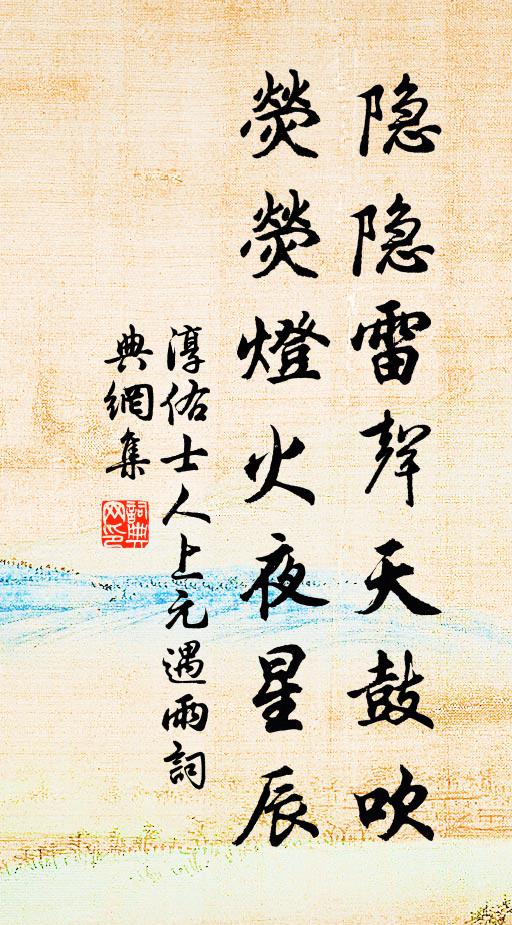 隐隐雷聲天鼓吹
熒熒燈火夜星辰
淳佑士人上元遇雨詞
典網集
詞典网印